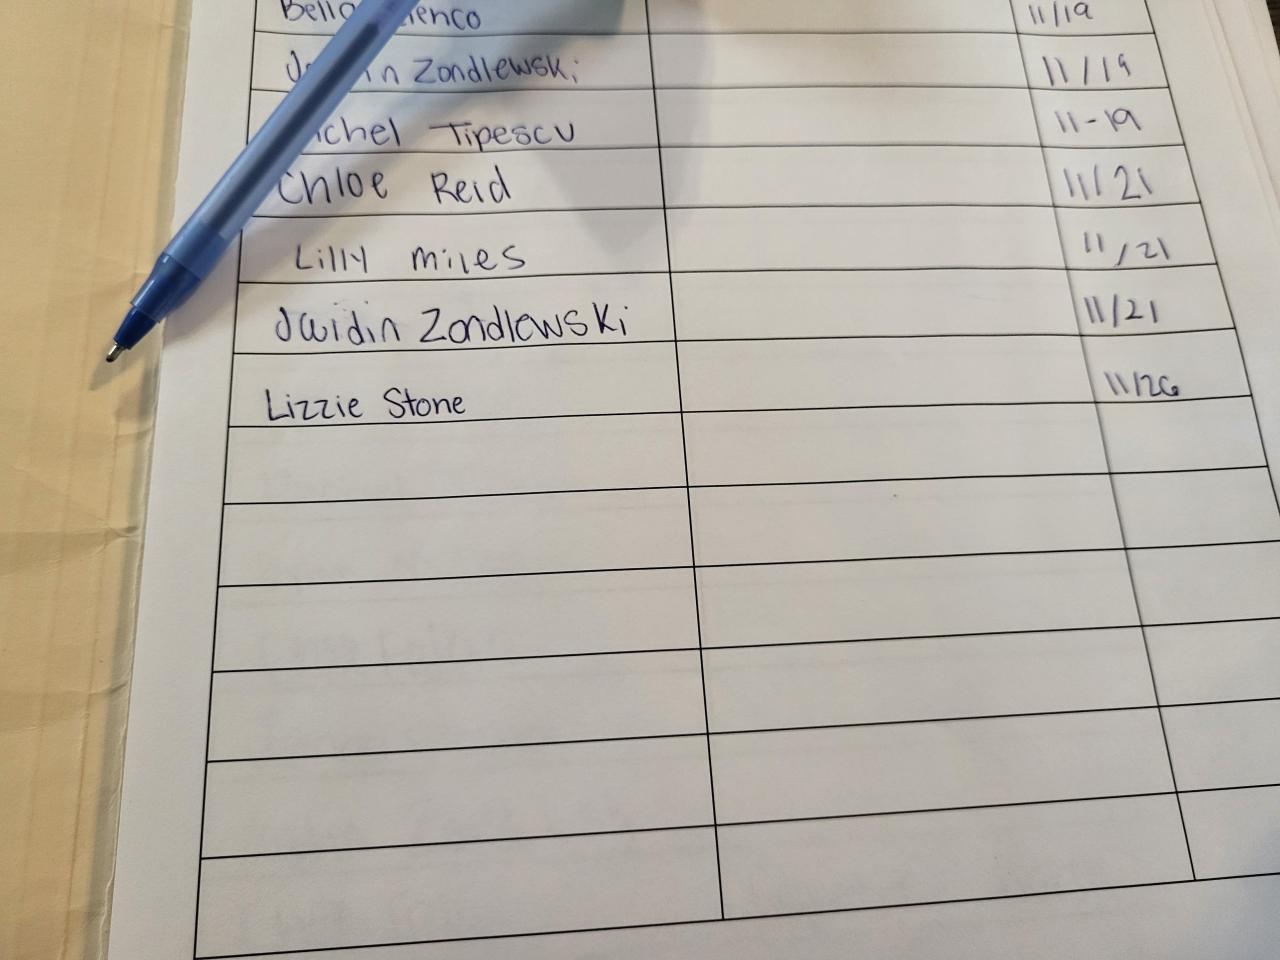 Bella 11/19
Zondlewski 11/19
Tipescu 11-19
Chloe Reid 11/21
Lilly Miles 11/21
Jaidin Zondlewski 11/21
Lizzie Stone 11/26